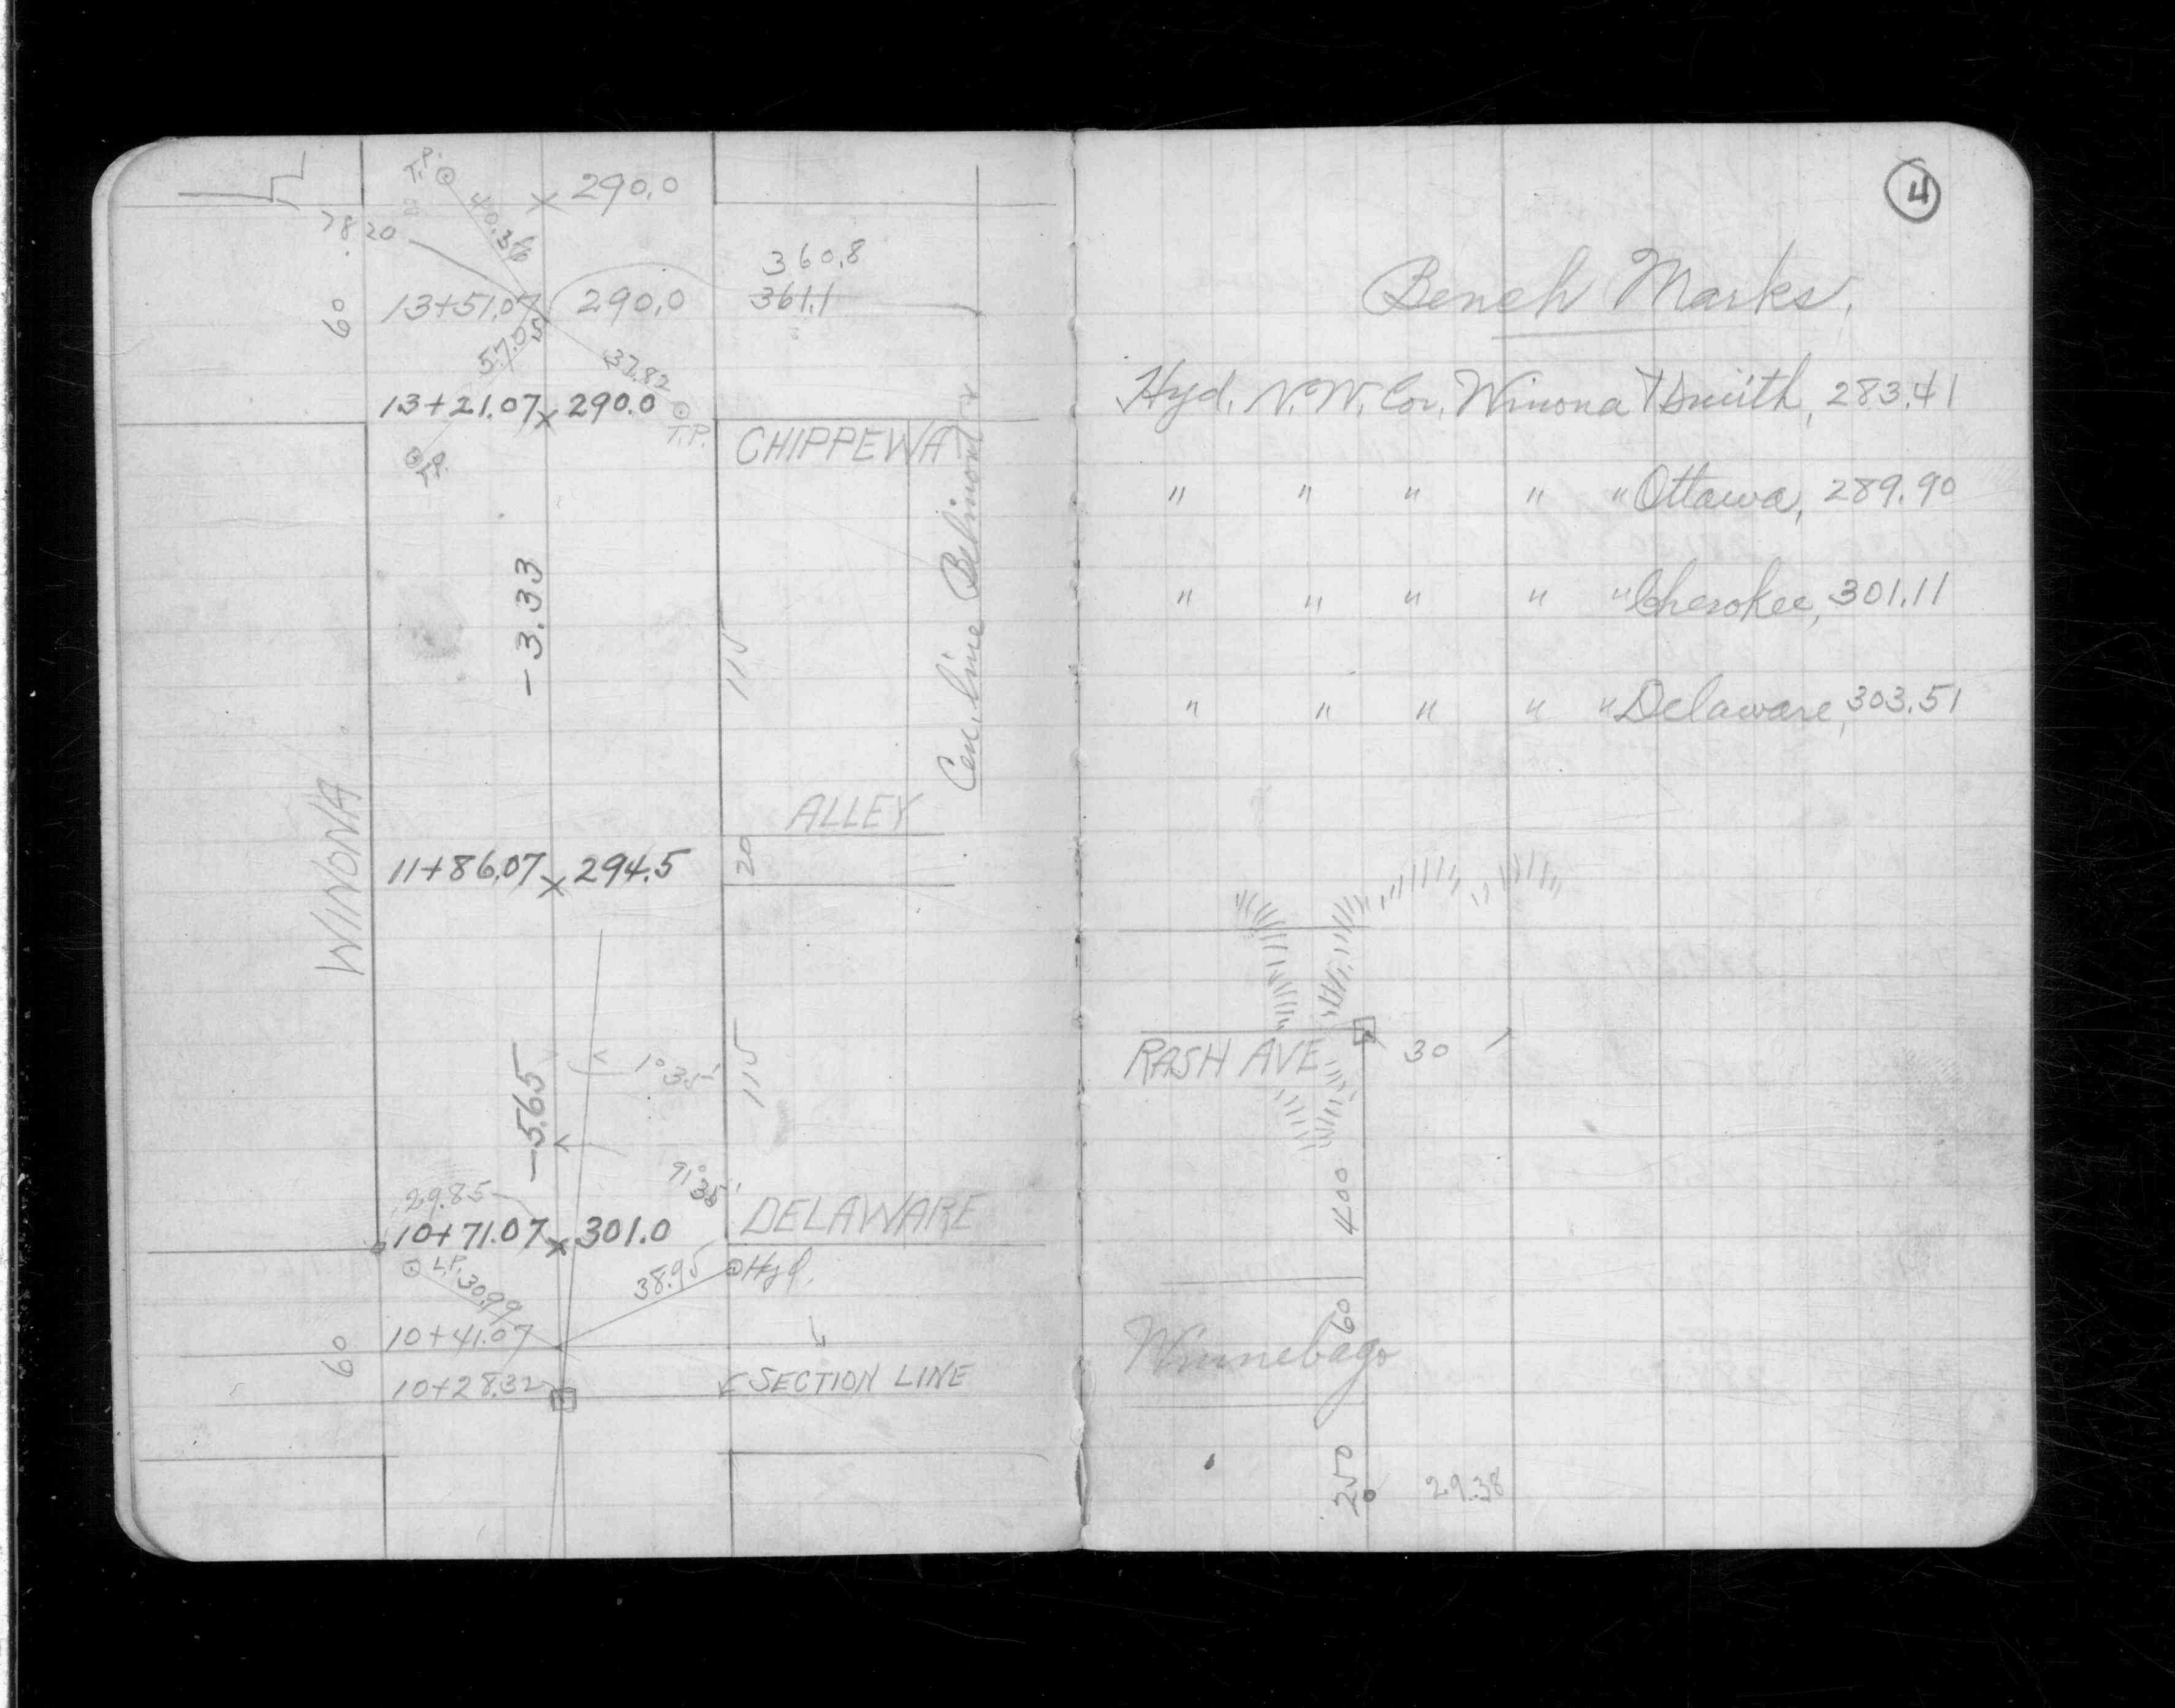 T.P.
40.36
290.0
78 20
360.8
361.1
60
13+51.07
290.0
57.05
37.82
13+21.07 x 290.0
T.P.
CHIPPEWA
-3.33
115
Cen. line Belmont
WINONA
ALLEY
11+86.07 x 294.5
20
1° 35'
115
-5.65
91° 35'
29.85
DELAWARE
10+71.07 x 301.0
L.P. 30.99
38.95
Hyd.
10+41.07
60
10+28.32
SECTION LINE
4
Bench Marks.
Hyd. N.W. Cor. Winona & Smith, 283.41
" " " " " Ottawa, 289.90
" " " " " Cherokee, 301.11
" " " " " Delaware, 303.51
RASH AVE
30
400
60
Winnebago
250
29.38